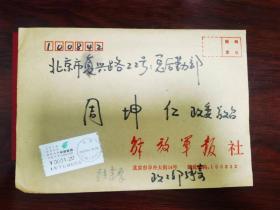 100842
北京市复兴路22号:总后勤部
周坤仁 政委 敬启
解放军报社
北京市阜外大街34号 邮政编码:100832